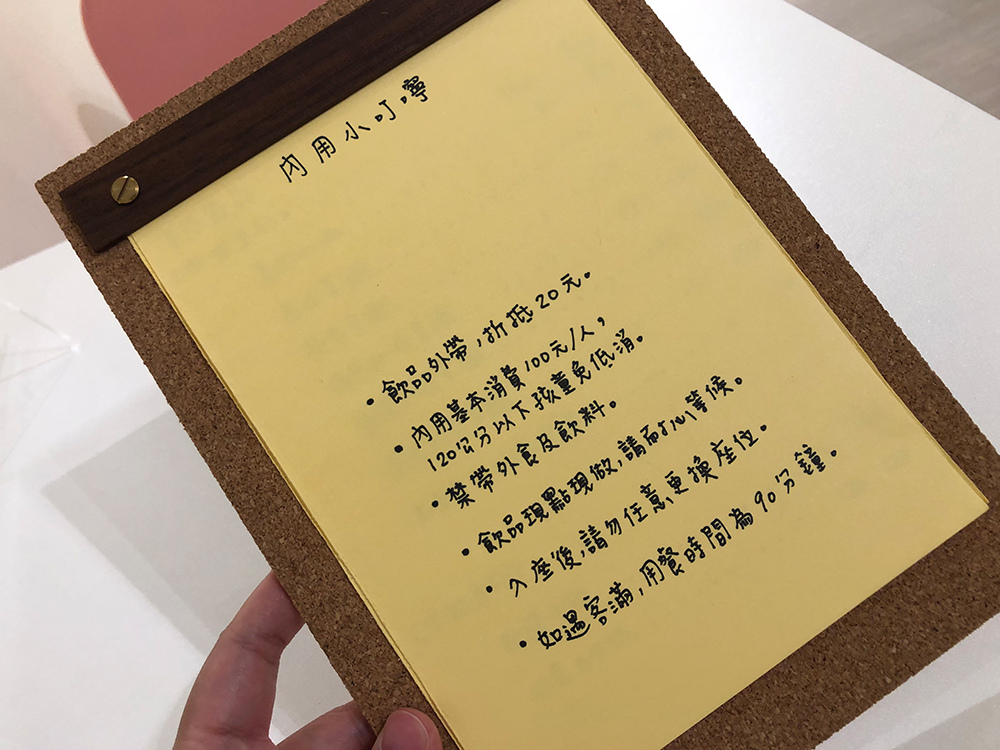 內用小叮嚀
• 飲品外帶，折抵20元。
• 內用基本消費100元/人，
120公分以下孩童免低消。
• 禁帶外食及飲料。
• 飲品現點現做，請耐心等候。
• 入座後，請勿任意更換座位。
• 如遇客滿，用餐時間為90分鐘。